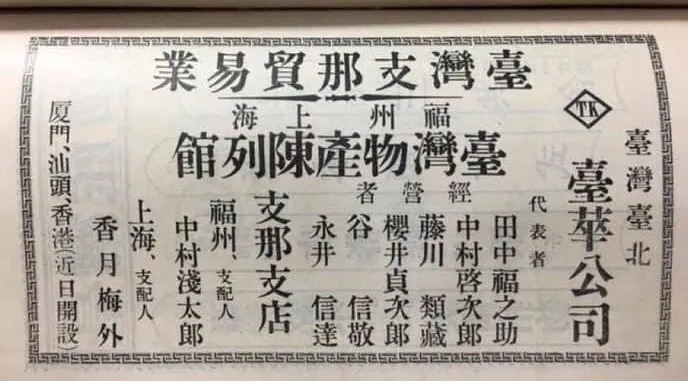 臺灣支那貿易業
福州上海
臺灣物產陳列館
經營者
臺灣臺北
TK
臺華公司
代表者
田中福之助
中村啓次郎
藤川類藏
櫻井貞次郎
谷信敬
永井信達
支那支店
福州、支配人
中村淺太郎
上海、支配人
香月梅外
厦門、汕頭、香港(近日開設)